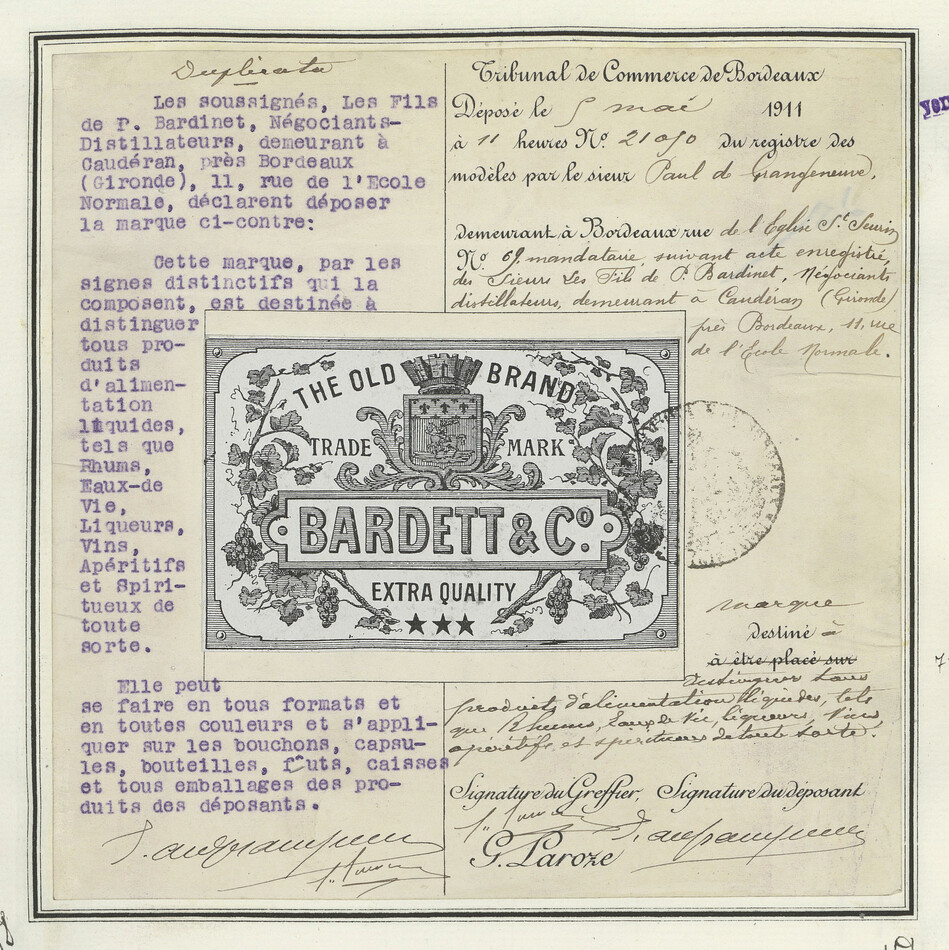 Duplicata
Les soussignés, Les Fils
de P. Bardinet, Négociants-
Distillateurs, demeurant à
Caudéran, près Bordeaux
(Gironde), 11, rue de l'Ecole
Normale, déclarent déposer
la marque ci-contre:
Cette marque, par les
signes distinctifs qui la
composent, est destinée à
distinguer
tous pro-
duits
d'alimen-
tation
liquides,
tels que
Rhums,
Eaux-de
Vie,
Liqueurs,
Vins,
Apéritifs
et Spiri-
tueux de
toute
sorte.
Elle peut
se faire en tous formats et
en toutes couleurs et s'appli-
quer sur les bouchons, capsu-
les, bouteilles, fûts, caisses
et tous emballages des pro-
duits des déposants.
THE OLD BRAND
TRADE MARK
BARDETT & Cº.
EXTRA QUALITY
Tribunal de Commerce de Bordeaux
Déposé le 5 mai 1911
à 11 heures Nº 21050 du registre des
modèles par le sieur Paul de Grangeneuve,
demeurant à Bordeaux rue de l'Eglise St Seurin
Nº 69, mandataire suivant acte enregistré,
des Sieurs Les Fils de P. Bardinet, Négociants
distillateurs, demeurant à Caudéran (Gironde)
près Bordeaux, 11, rue
de l'Ecole Normale.
marque
destiné à
à être placé sur
distinguer tous
produits d'alimentation liquides, tels
que Rhums, Eaux de Vie, liqueurs, Vins,
apéritifs et spiritueux de toute sorte.
Signature du Greffier, Signature du déposant
G. Laroze